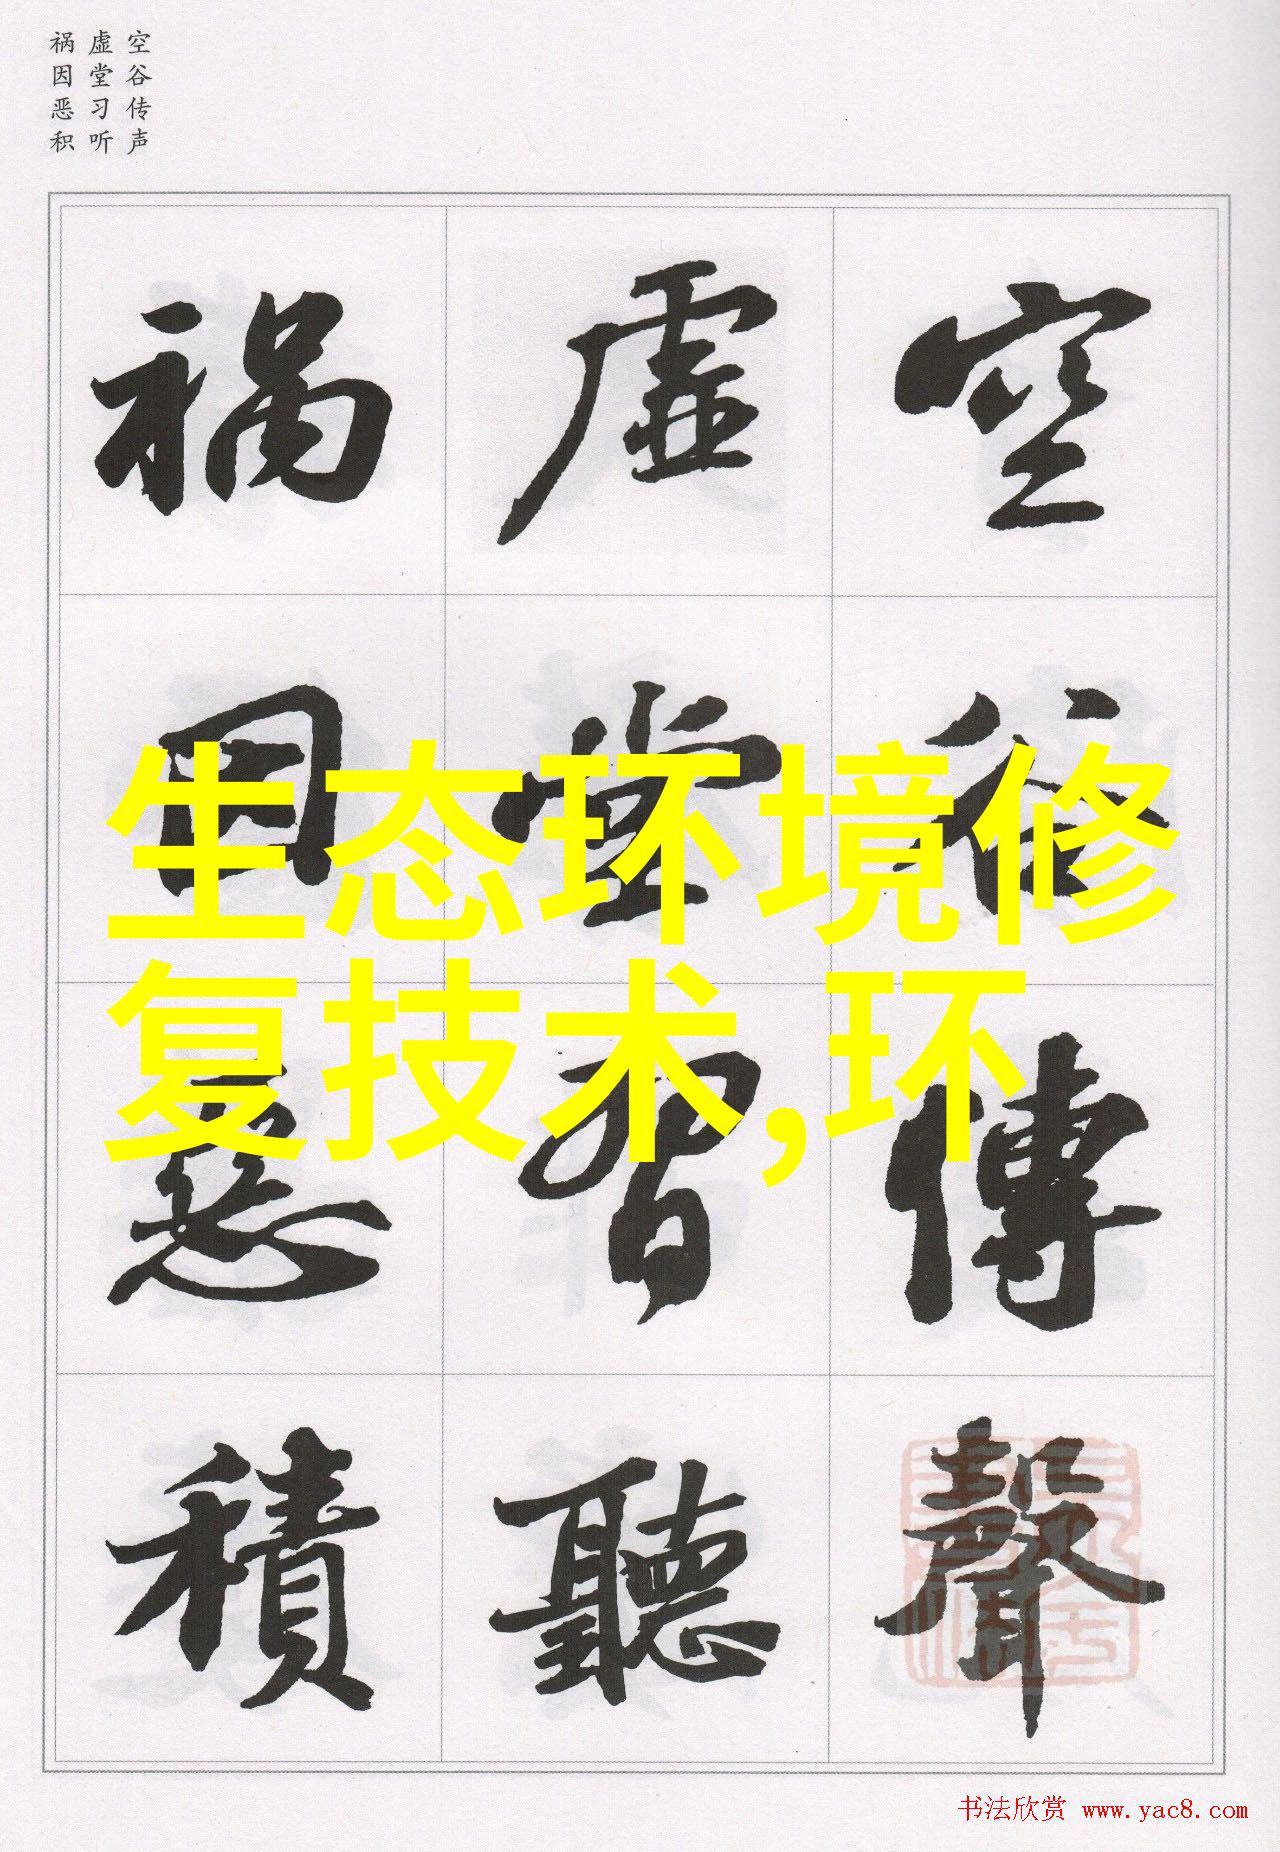 空谷传声
虚堂习听
祸因恶积
空谷傳聲
虚堂習聽
禍因惡積
生态环境修
复技术,环
书法欣赏 www.yac8.com